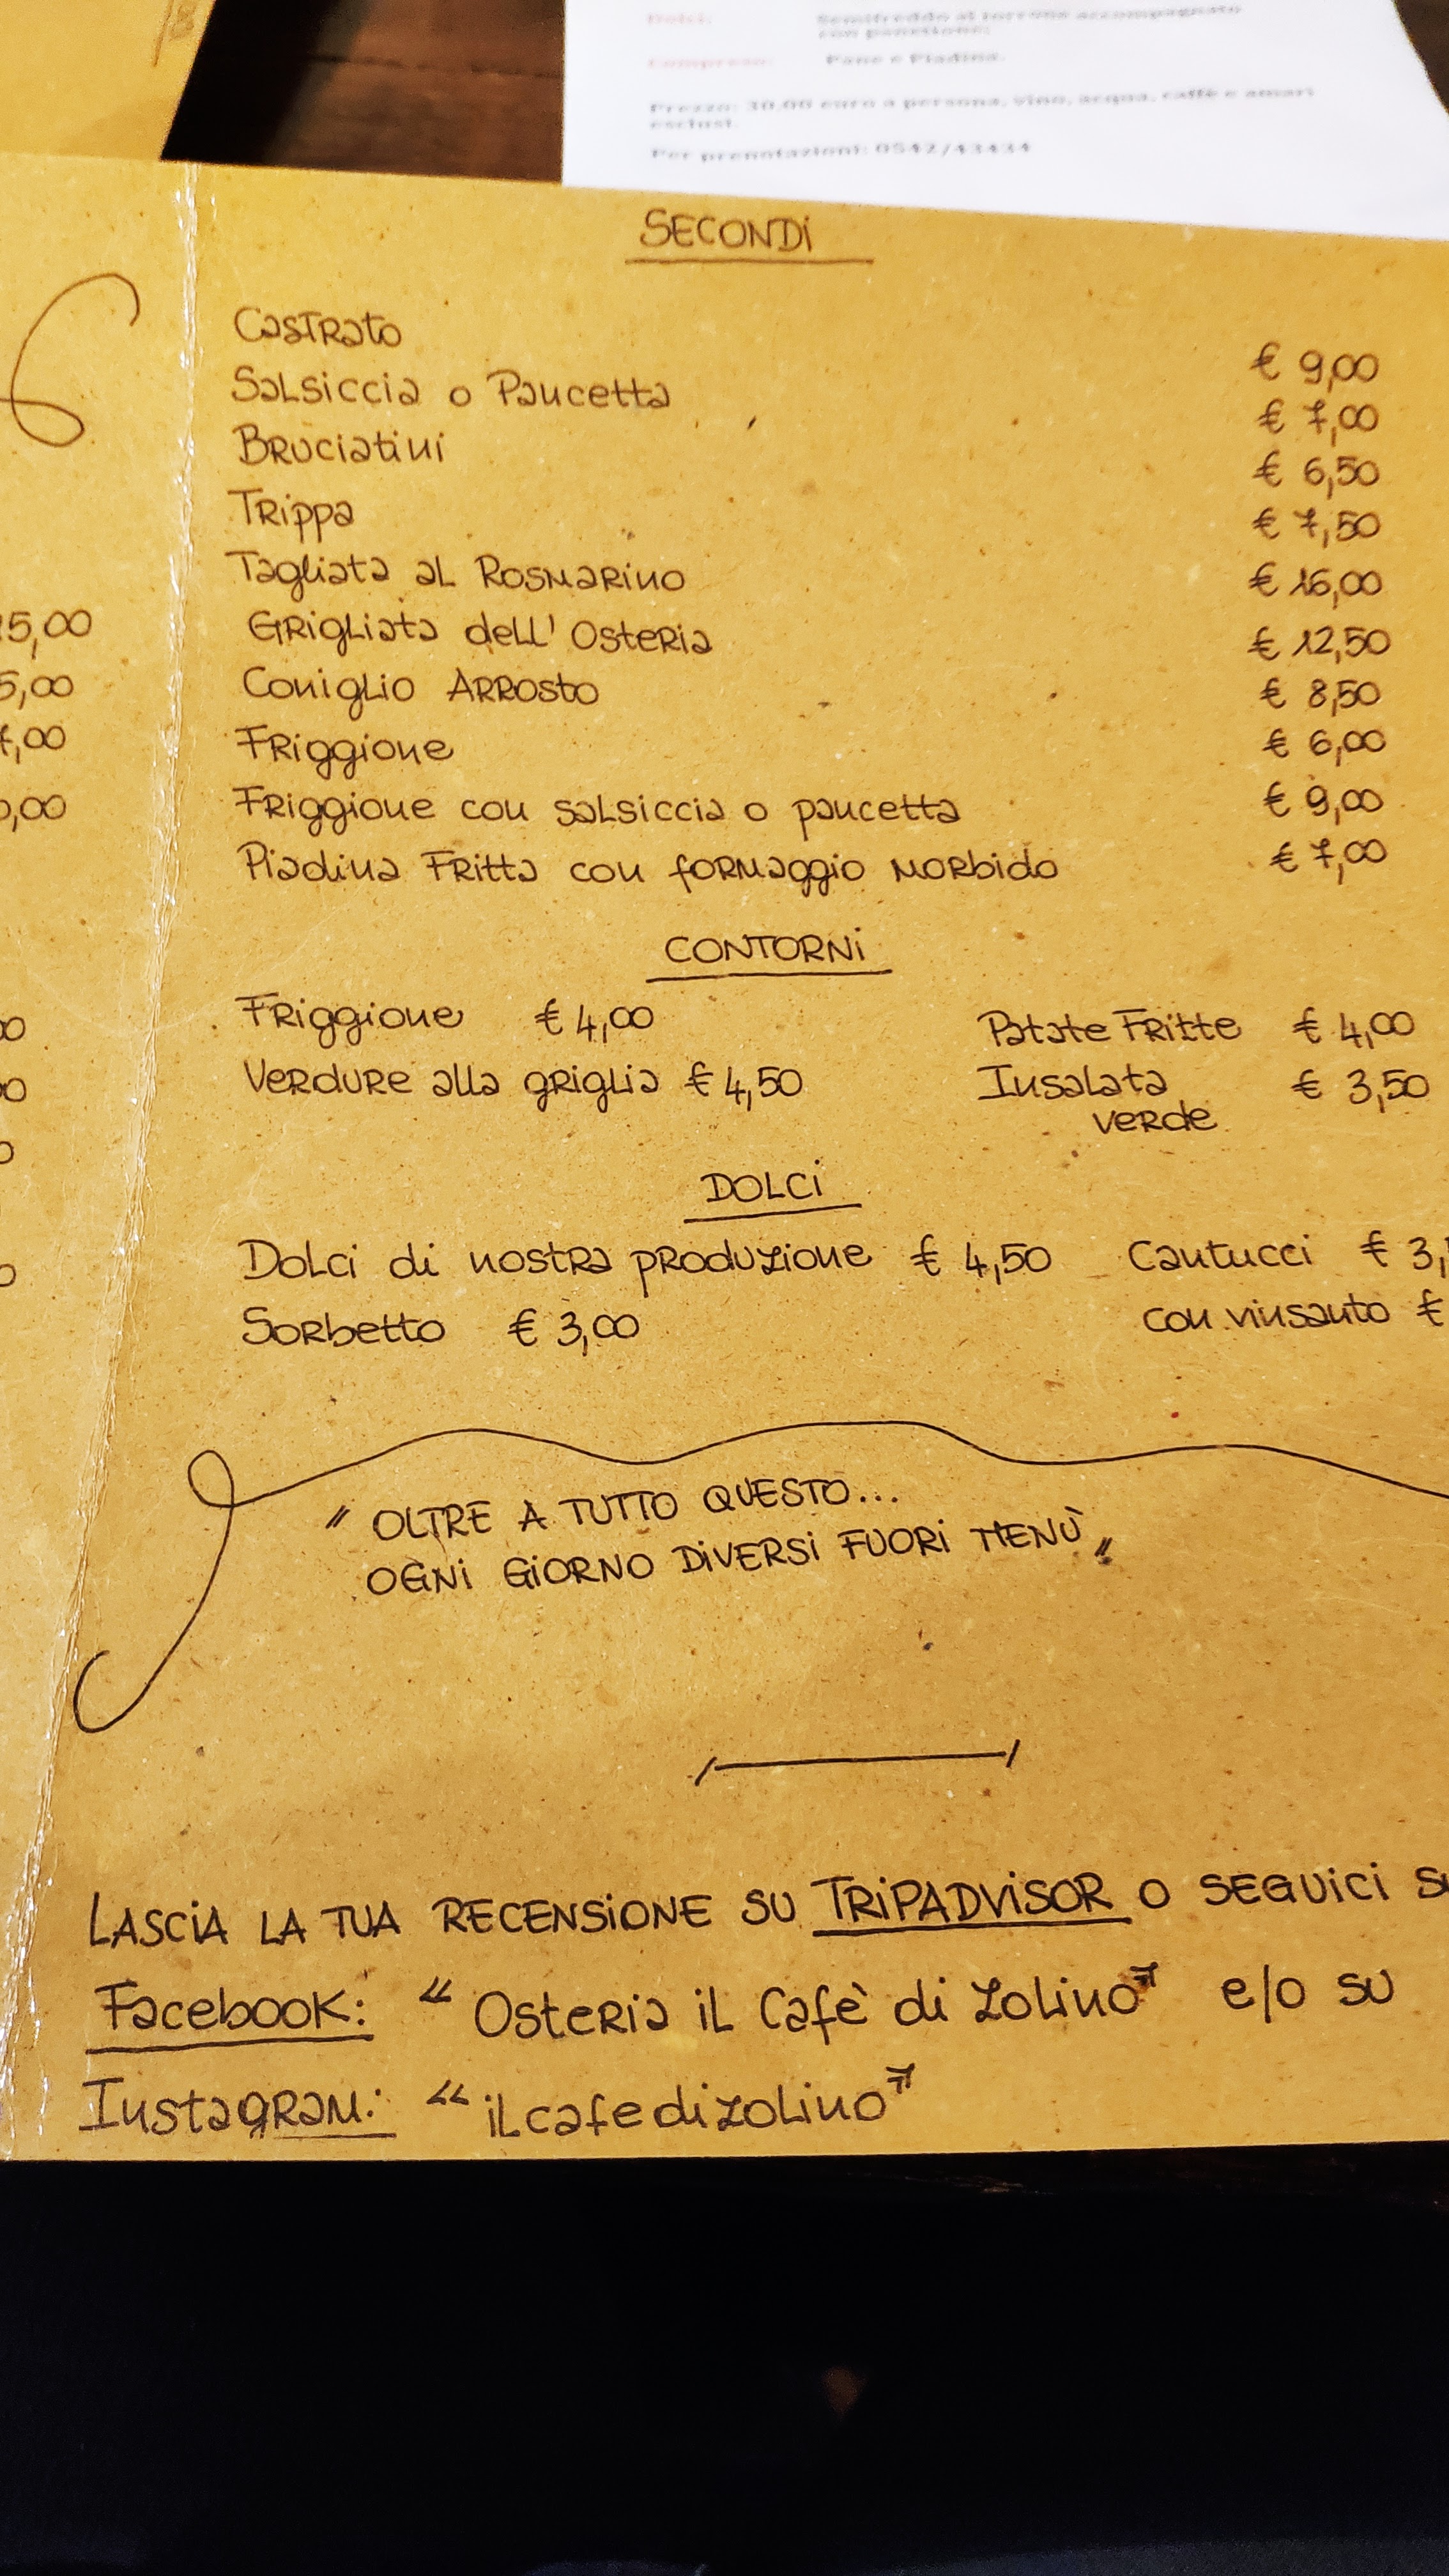 Dolci: Semifreddo al torrone accompagnato
con panettone;
Compreso: Pane e Piadina.
Prezzo: 30,00 euro a persona, vino, acqua, caffè e amari
esclusi.
Per prenotazioni: 0542/43434
SECONDI
Castrato € 9,00
Salsiccia o Pancetta € 7,00
Bruciatini € 6,50
Trippa € 7,50
Tagliata al Rosmarino € 16,00
Grigliata dell' Osteria € 12,50
Coniglio Arrosto € 8,50
Friggione € 6,00
Friggione con salsiccia o pancetta € 9,00
Piadina Fritta con formaggio morbido € 7,00
5,00
5,00
7,00
,00
CONTORNI
Friggione € 4,00 Patate Fritte € 4,00
Verdure alla griglia € 4,50 Insalata € 3,50
verde
DOLCI
Dolci di nostra produzione € 4,50 Cantucci € 3,
Sorbetto € 3,00 con vinsanto €
" OLTRE A TUTTO QUESTO...
OGNI GIORNO DIVERSI FUORI MENÙ "
LASCIA LA TUA RECENSIONE SU TRIPADVISOR O SEGUICI SU
Facebook: " Osteria il Cafè di Zolino" e/o su
Instagram: " ilcafedizolino"